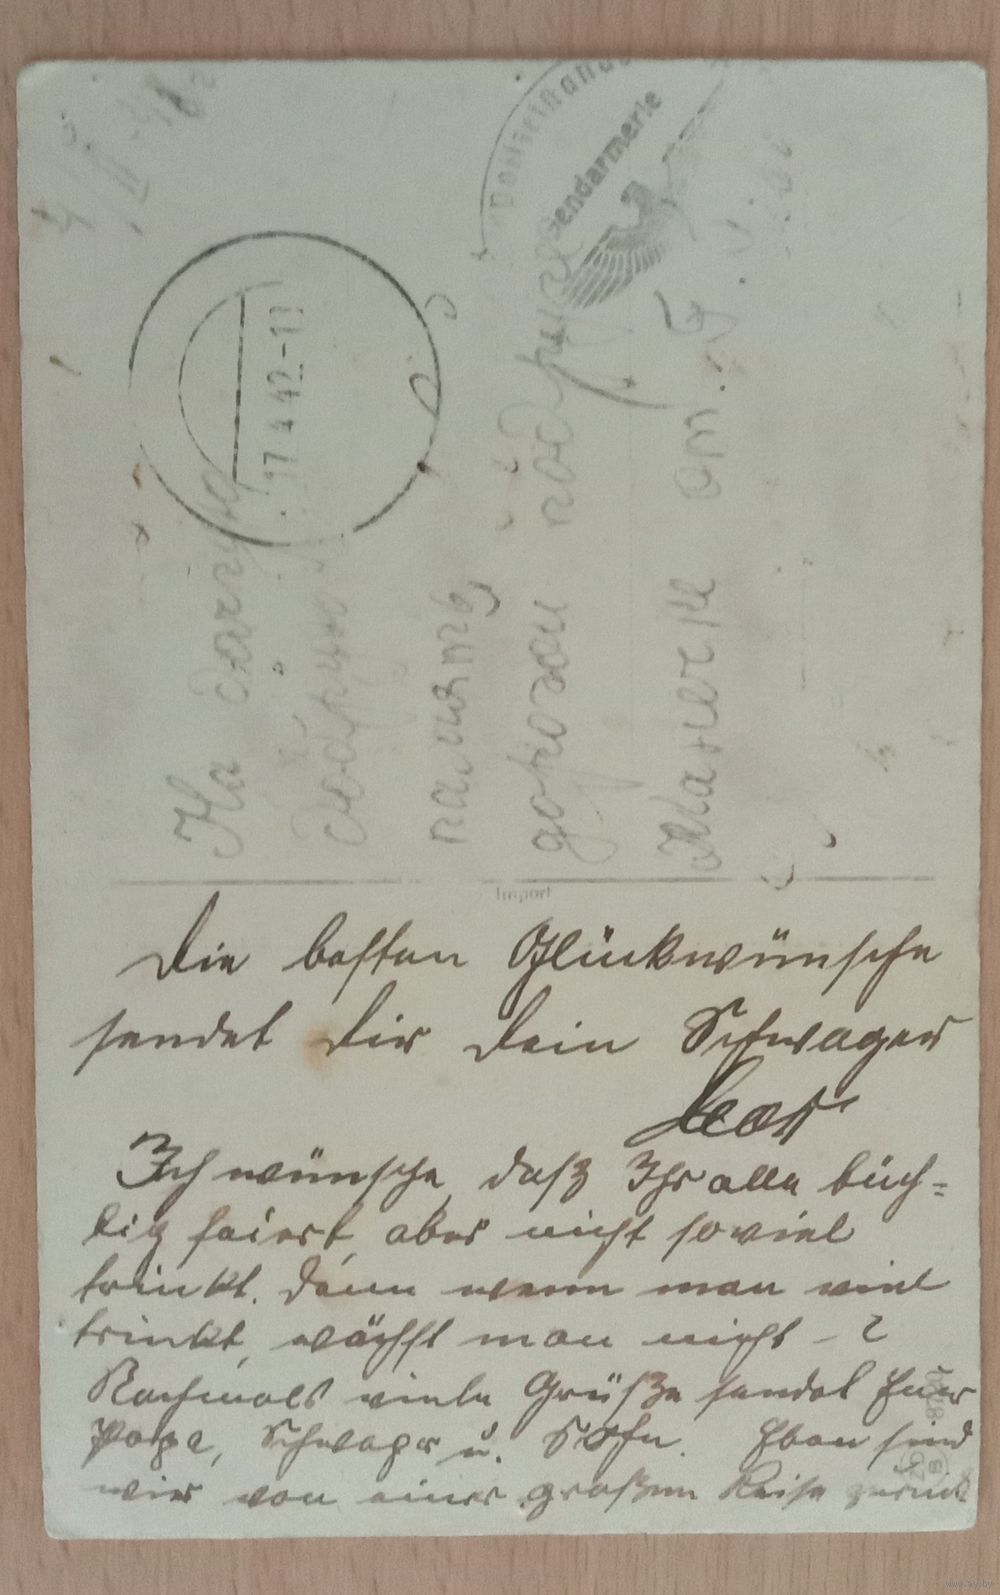 Gendarmerie
17.4.42-11
На
добрую
память
дорогой подруге
от
Import
Die besten Glückwünsche
sendet Dir Dein Schwager
Ich wünsche, daß Ihr alle tüch=
tig feiert, aber nicht soviel
trinkt. Denn wenn man viel
trinkt, wächst man nicht - ?
Nochmals viele Grüße sendet Euer
Papa, Schwager u. Sohn. Eben sind
wir von einer großen Reise zurück